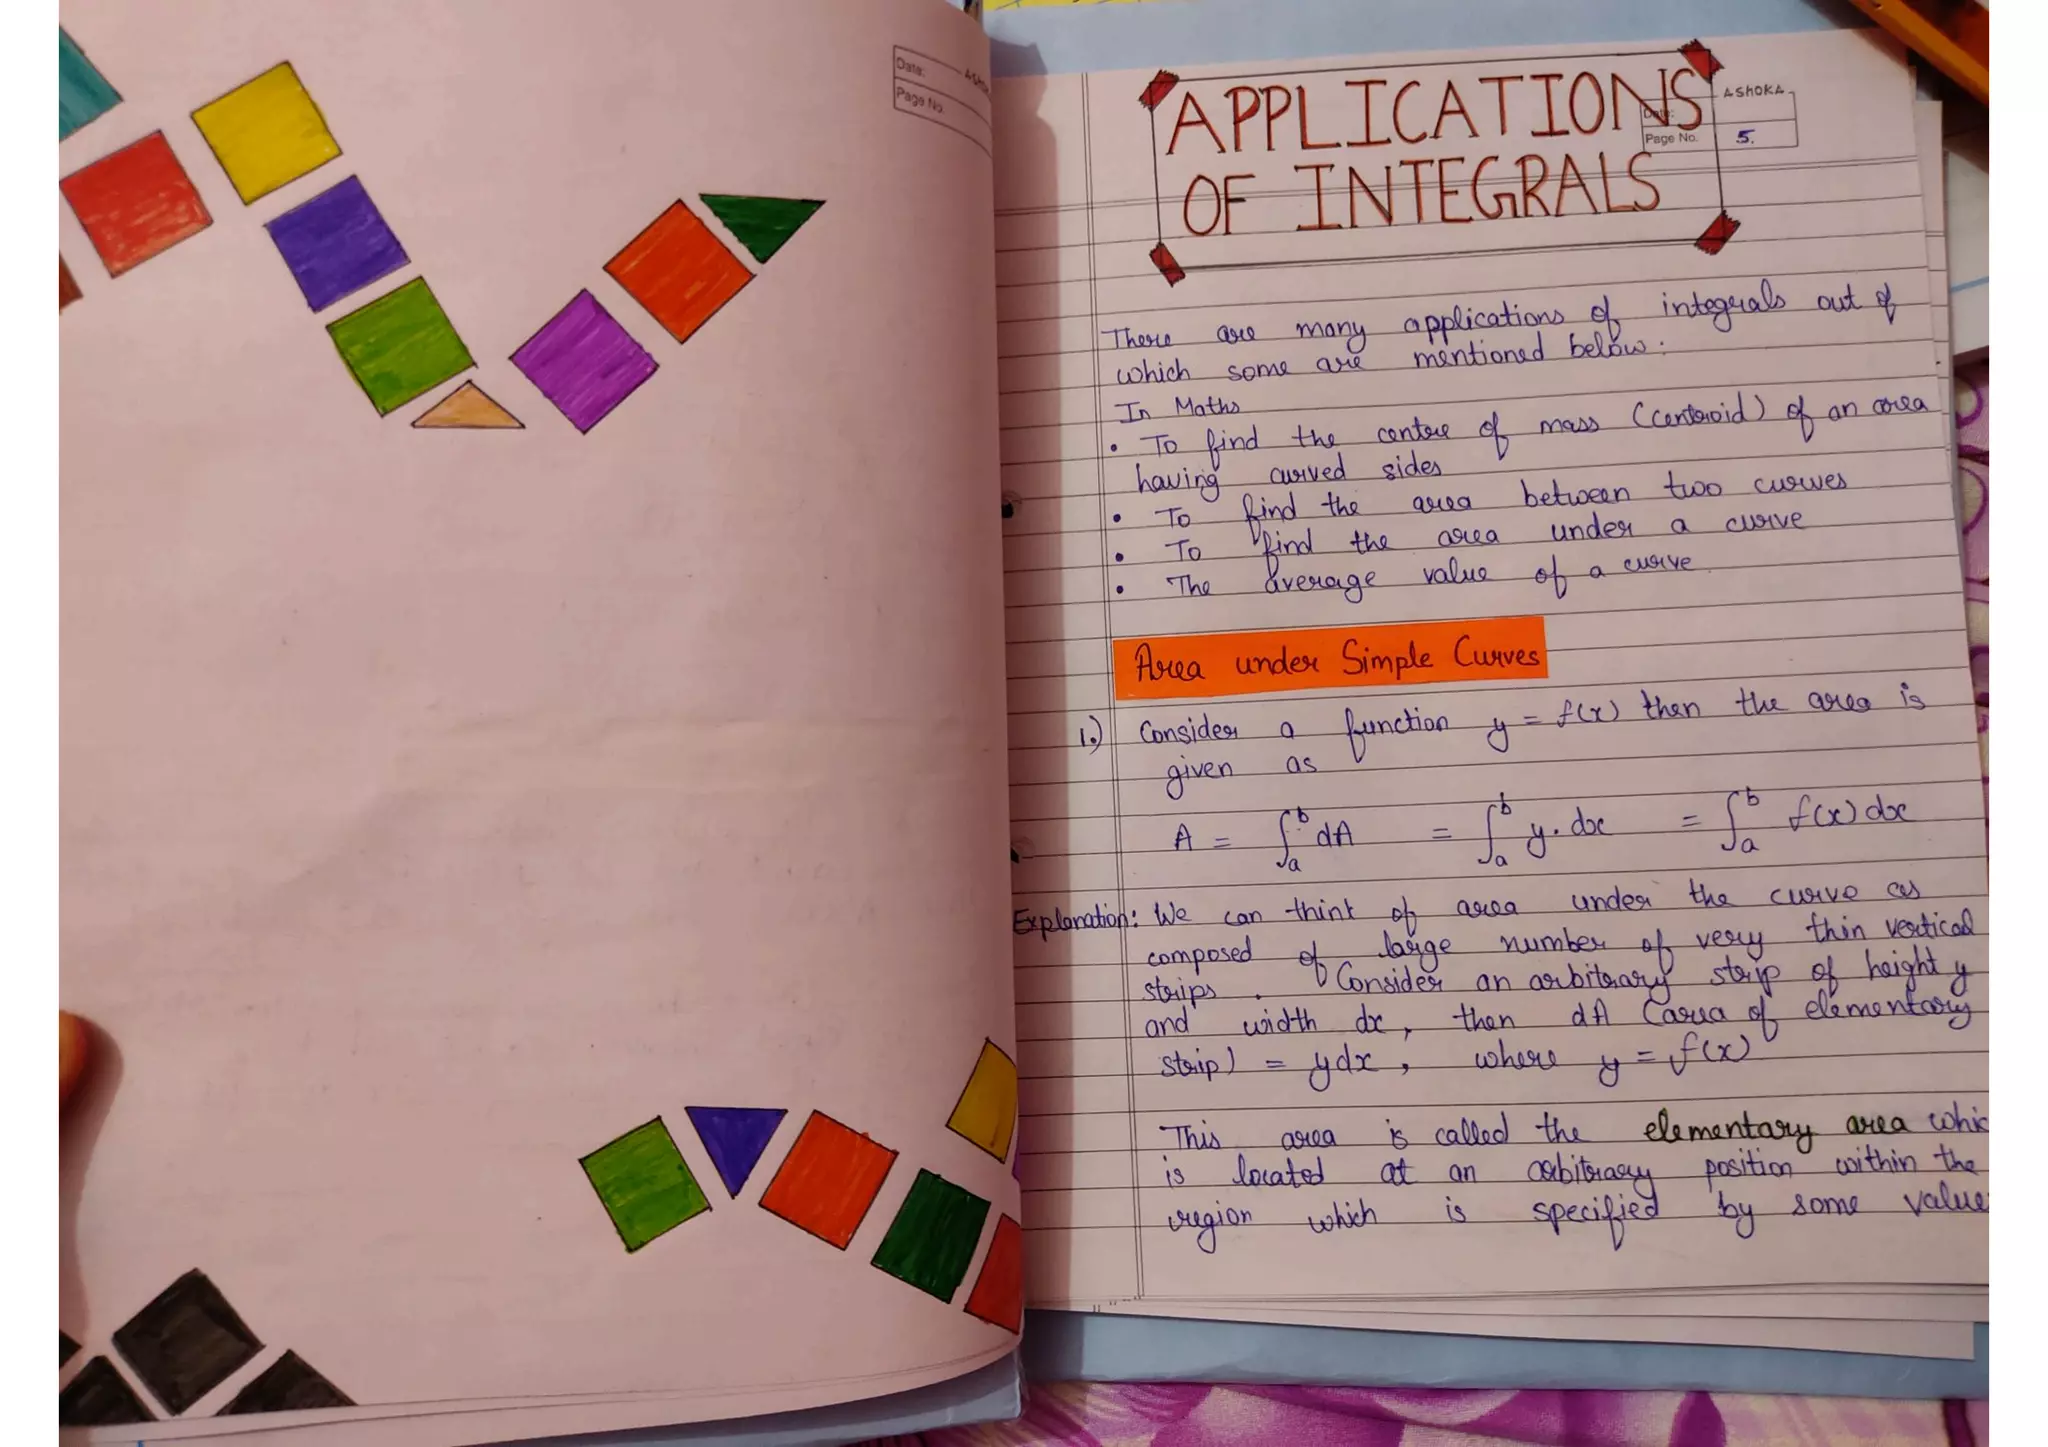 Date:
Page No.
APPLICATIONS
OF INTEGRALS
ASHOKA
Date:
Page No. 5.
There are many applications of integrals out of
which some are mentioned below:
In Maths
• To find the centre of mass (centroid) of an area
having curved sides
• To find the area between two curves
• To find the area under a curve
• The average value of a curve
Area under Simple Curves
1.) Consider a function y = f(x) then the area is
given as
A = ∫ₐᵇ dA = ∫ₐᵇ y.dx = ∫ₐᵇ f(x) dx
Explanation: We can think of area under the curve as
composed of large number of very thin vertical
strips. Consider an arbitrary strip of height y
and width dx, then dA (area of elementary
strip) = ydx, where y = f(x)
This area is called the elementary area whic
is located at an arbitrary position within the
region which is specified by some value